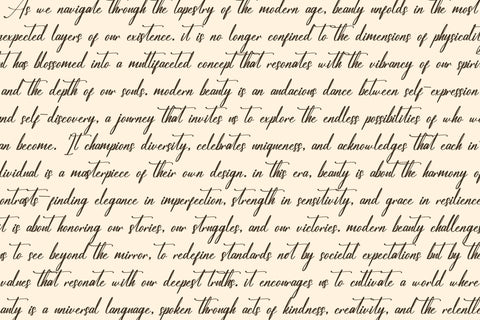 As we navigate through the tapestry of the modern age, beauty unfolds in the most
nexpected layers of our existence. it is no longer confined to the dimensions of physicality
ut has blossomed into a multifaceted concept that resonates with the vibrancy of our spiri
and the depth of our souls. modern beauty is an audacious dance between self-expression
nd self-discovery, a journey that invites us to explore the endless possibilities of who w
an become. It champions diversity, celebrates uniqueness, and acknowledges that each in
dividual is a masterpiece of their own design. in this era, beauty is about the harmony of
ontrasts-finding elegance in imperfection, strength in sensitivity, and grace in resilience
t is about honoring our stories, our struggles, and our victories. modern beauty challenges
us to see beyond the mirror, to redefine standards not by societal expectations but by the
values that resonate with our deepest truths. it encourages us to cultivate a world where
eauty is a universal language, spoken through acts of kindness, creativity, and the relentle